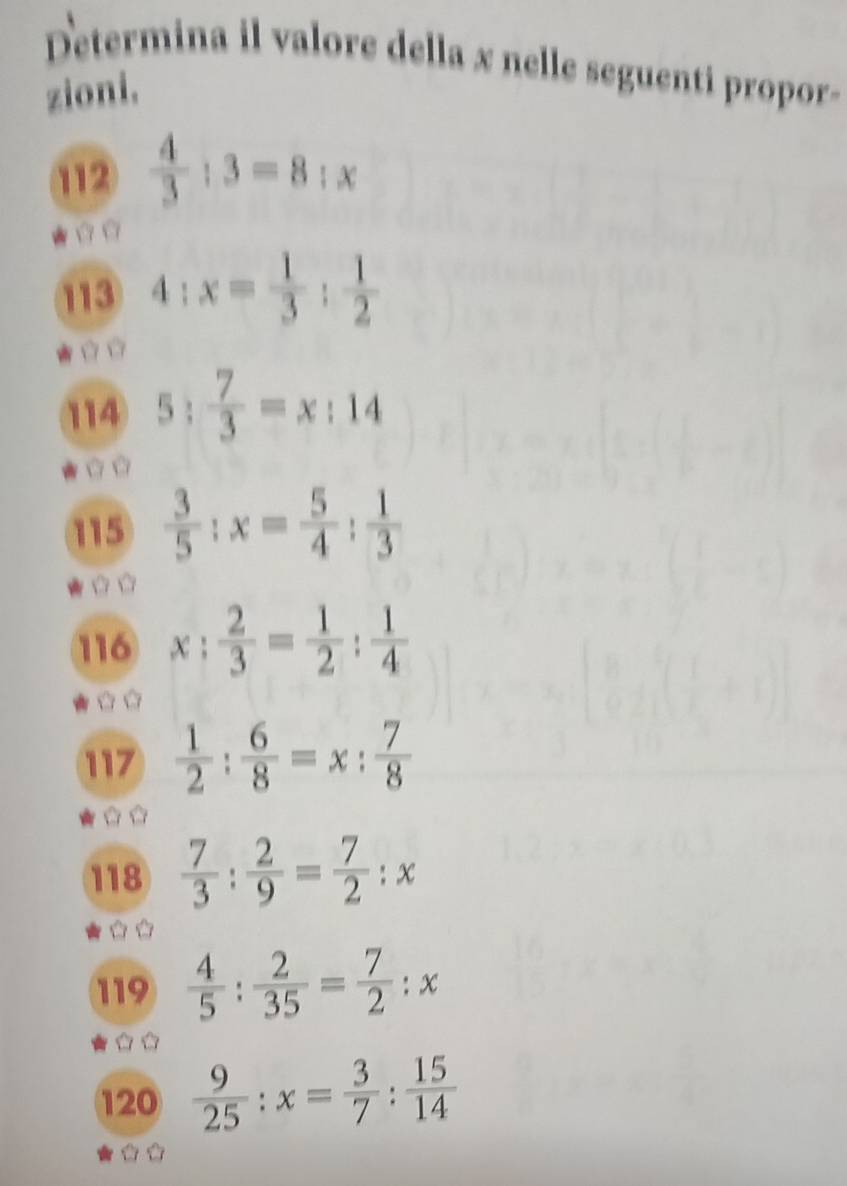 Determina il valore della x nelle seguenti propor-
zioni.
112 4/3 : 3 = 8 : x
113 4 : x = 1/3 : 1/2
114 5 : 7/3 = x : 14
115 3/5 : x = 5/4 : 1/3
116 x : 2/3 = 1/2 : 1/4
117 1/2 : 6/8 = x : 7/8
118 7/3 : 2/9 = 7/2 : x
119 4/5 : 2/35 = 7/2 : x
120 9/25 : x = 3/7 : 15/14